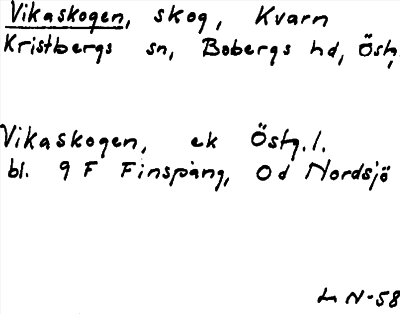 Vikaskogen, skog, Kvarn
Kristbergs sn, Bobergs hd, Östg.
Vikaskogen, ek Östg. l.
bl. 9 F Finspång, Od Nordsjö
LN-58